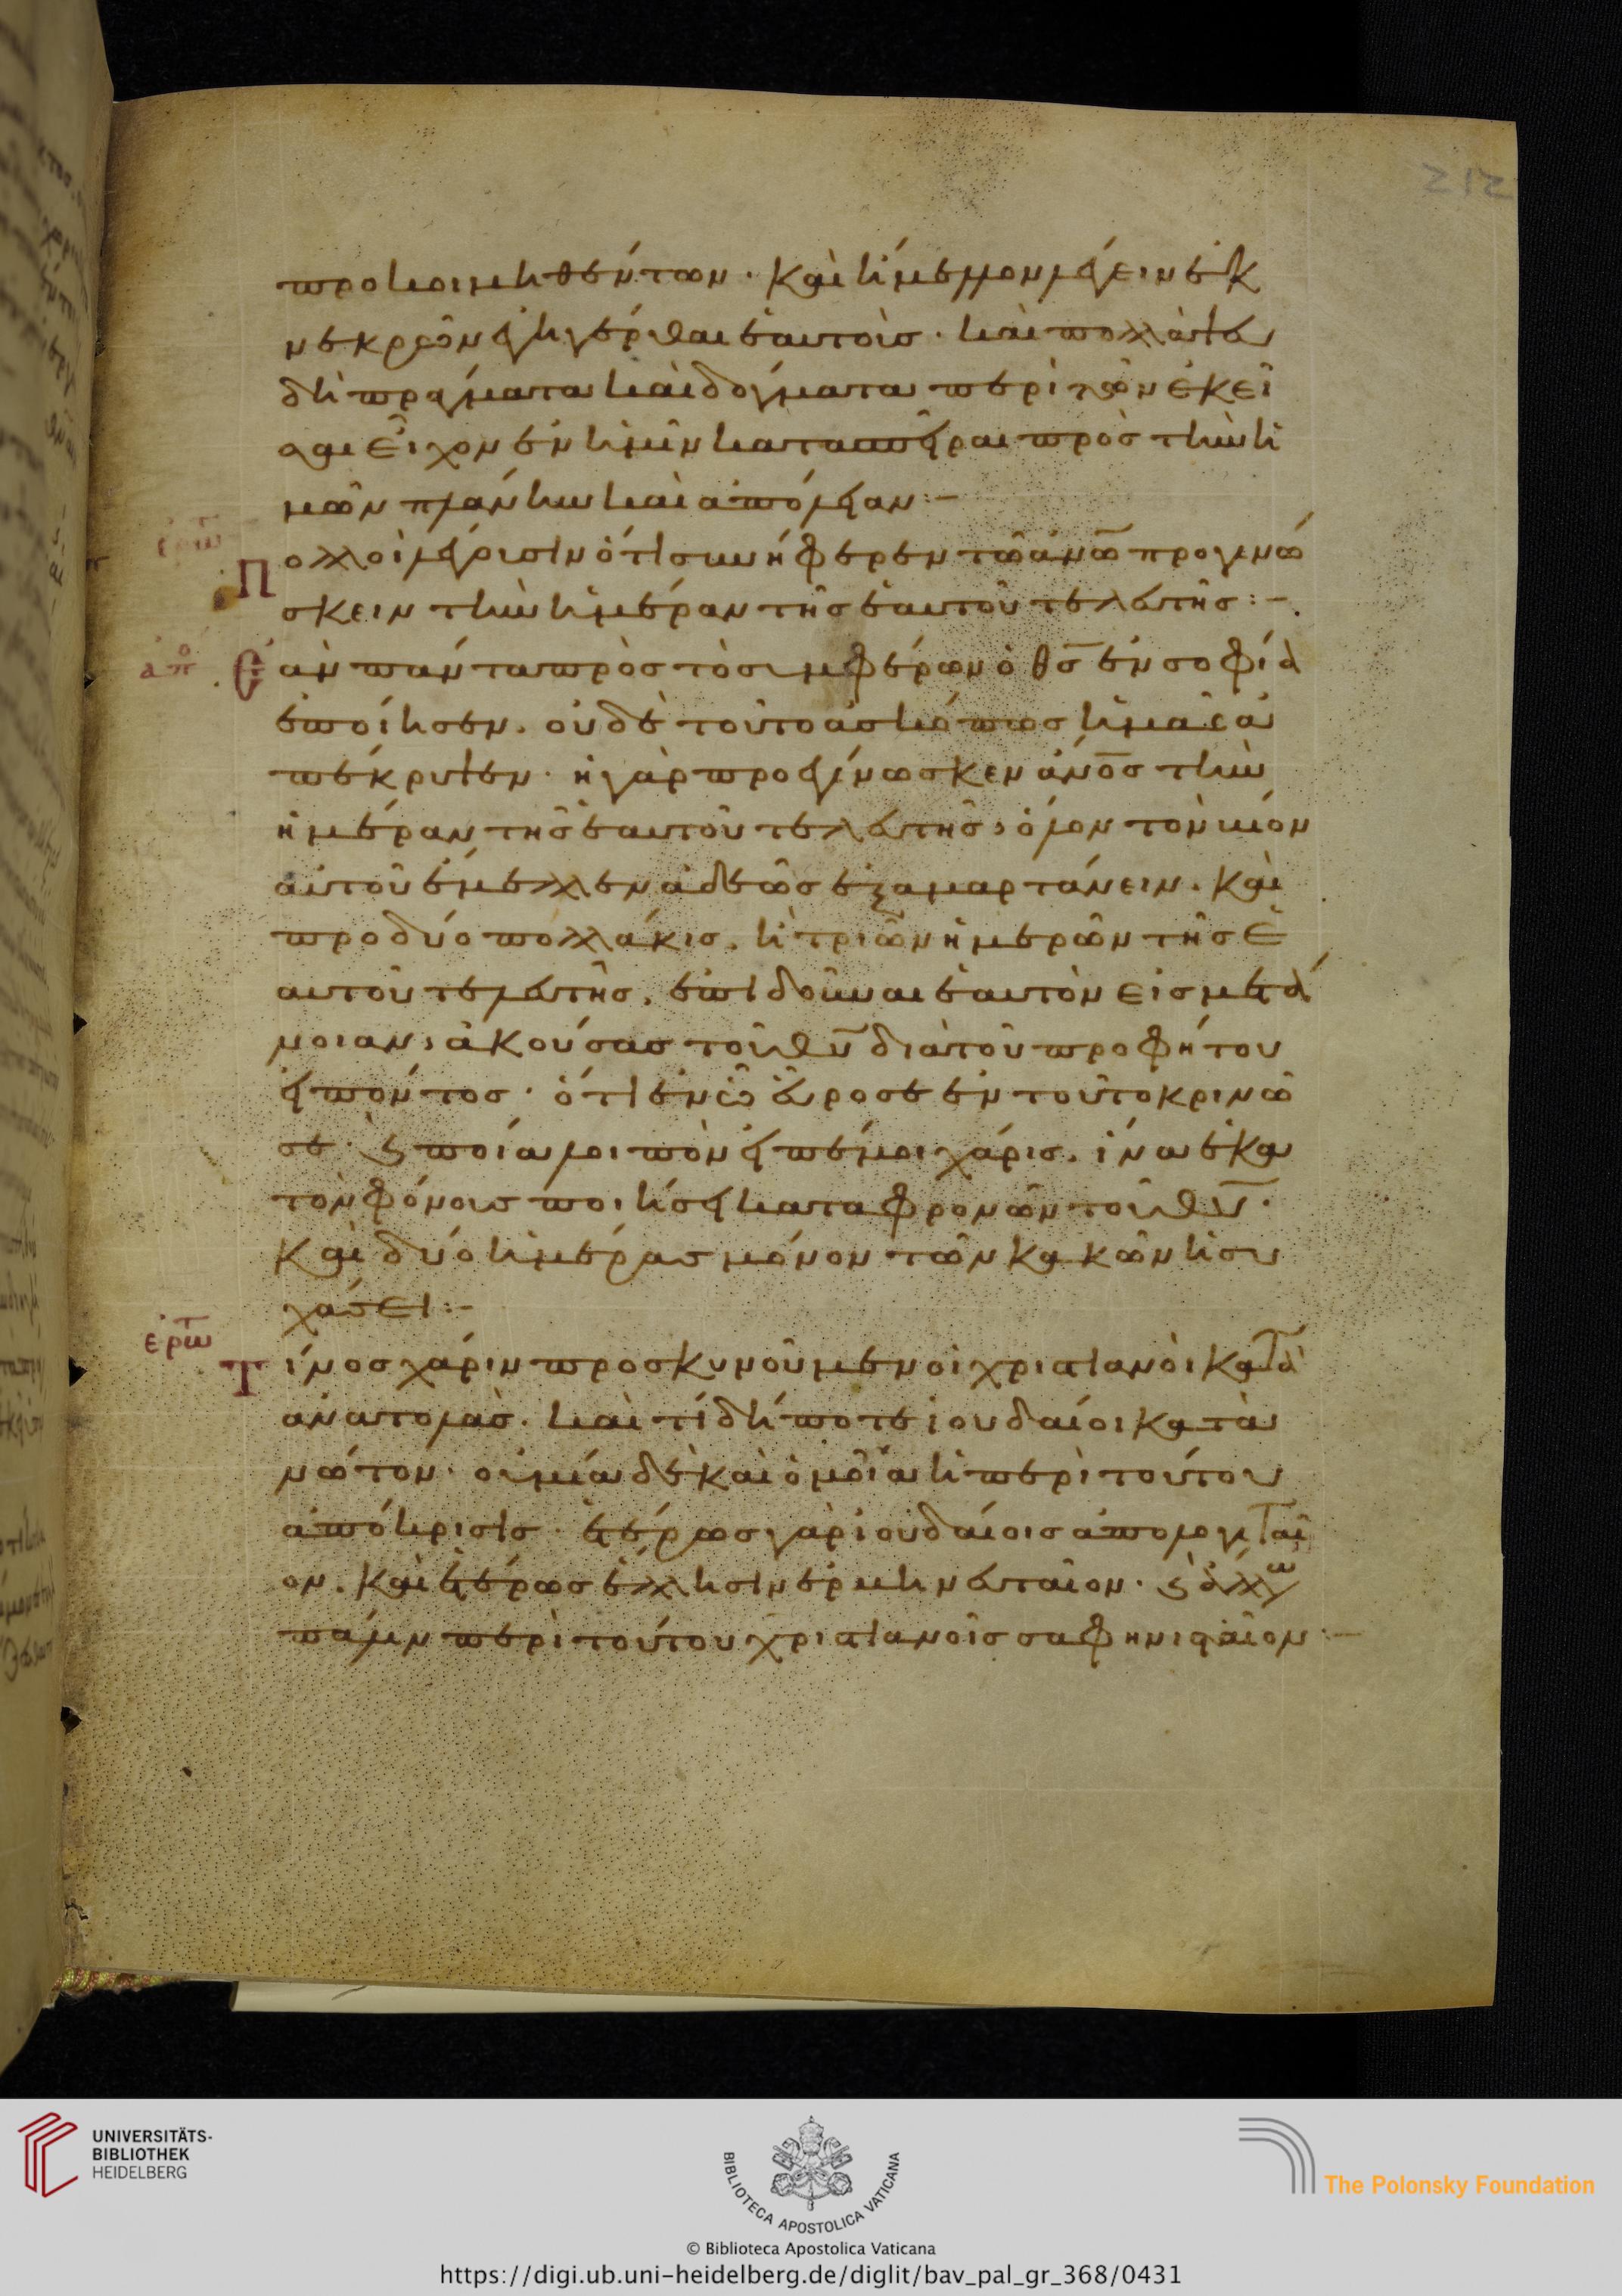 212
προκοιμηθέντων· καὶ ἤμελλον λέγειν ἐκ
νεκρῶν ἐγηγέρθαι ἑαυτοῖς· καὶ πολλὰ ἂν
δὴ πράγματα καὶ δόγματα περὶ τῶν ἐκεῖ
εἶχον ἐν ἡμῖν κατασπεῖραι πρὸς τὴν ἡ
μῶν πλάνην καὶ ἀπώλειαν:-
ἐρώτ
Πολλοὶ λέγουσιν ὅτι συνήφερεν τῷ ἀνῷ προγινώ
σκειν τὴν ἡμέραν τῆς ἑαυτοῦ τελευτῆς:-
ἀπο
Ἐὰν πάντα πρὸς τὸ συμφέρων ὁ θς ἐν σοφίᾳ
ἐποίησεν. οὐδὲ τοῦτο ἀσκόπως ἡμᾶς ἀ
πέκρυψεν· ἢ γὰρ προεγίνωσκεν ἄνος τὴν
ἡμέραν τῆς ἑαυτοῦ τελευτῆς, ὅλον τὸν βίον
αὐτοῦ ἔμελλεν ἀδεῶς ἐξαμαρτάνειν. καὶ
προ δύο πολλάκις, ἢ τριῶν ἡμερῶν τῆς ἑ
αυτοῦ τελευτῆς, ἐπιδοῦναι ἑαυτὸν εἰς μετά
νοιαν, ἀκούσας τοῦ θυ διὰ τοῦ προφήτου
εἰπόντος· ὅτι ἐν ᾧ εὕρω σε ἐν τούτο κρινῶ
σε· καὶ ποία λοιπὸν εἰπέ μοι χάρις, ἵνα ἑκα
τὸν φόνους ποιήσει καταφρονῶν τοῦ θυ·
καὶ δύο ἡμέρας μόνον τῶν κακῶν ἡσυ
χάσει:-
ἐρώτ
Τίνος χάριν προσκυνοῦμεν οἱ χριστιανοὶ κατὰ
ἀνατολὰς. καὶ τί δήποτε ἰουδαίοι κατὰ
νώτον· οὐ μία δὲ καὶ ὁμοῖα ἡ περὶ τούτου
ἀπόκρισις· ἑτέρως γὰρ ἰουδαίοις ἀπολογηταῖ
ον. καὶ ἑτέρως ἕλλησιν ἑρμηνευταῖον· καὶ ἄλλως
πάλιν περὶ τούτου χριστιανοῖς σαφηνισταῖον:-
UNIVERSITÄTS-
BIBLIOTHEK
HEIDELBERG
BIBLIOTECA APOSTOLICA VATICANA
The Polonsky Foundation
© Biblioteca Apostolica Vaticana
https://digi.ub.uni-heidelberg.de/diglit/bav_pal_gr_368/0431